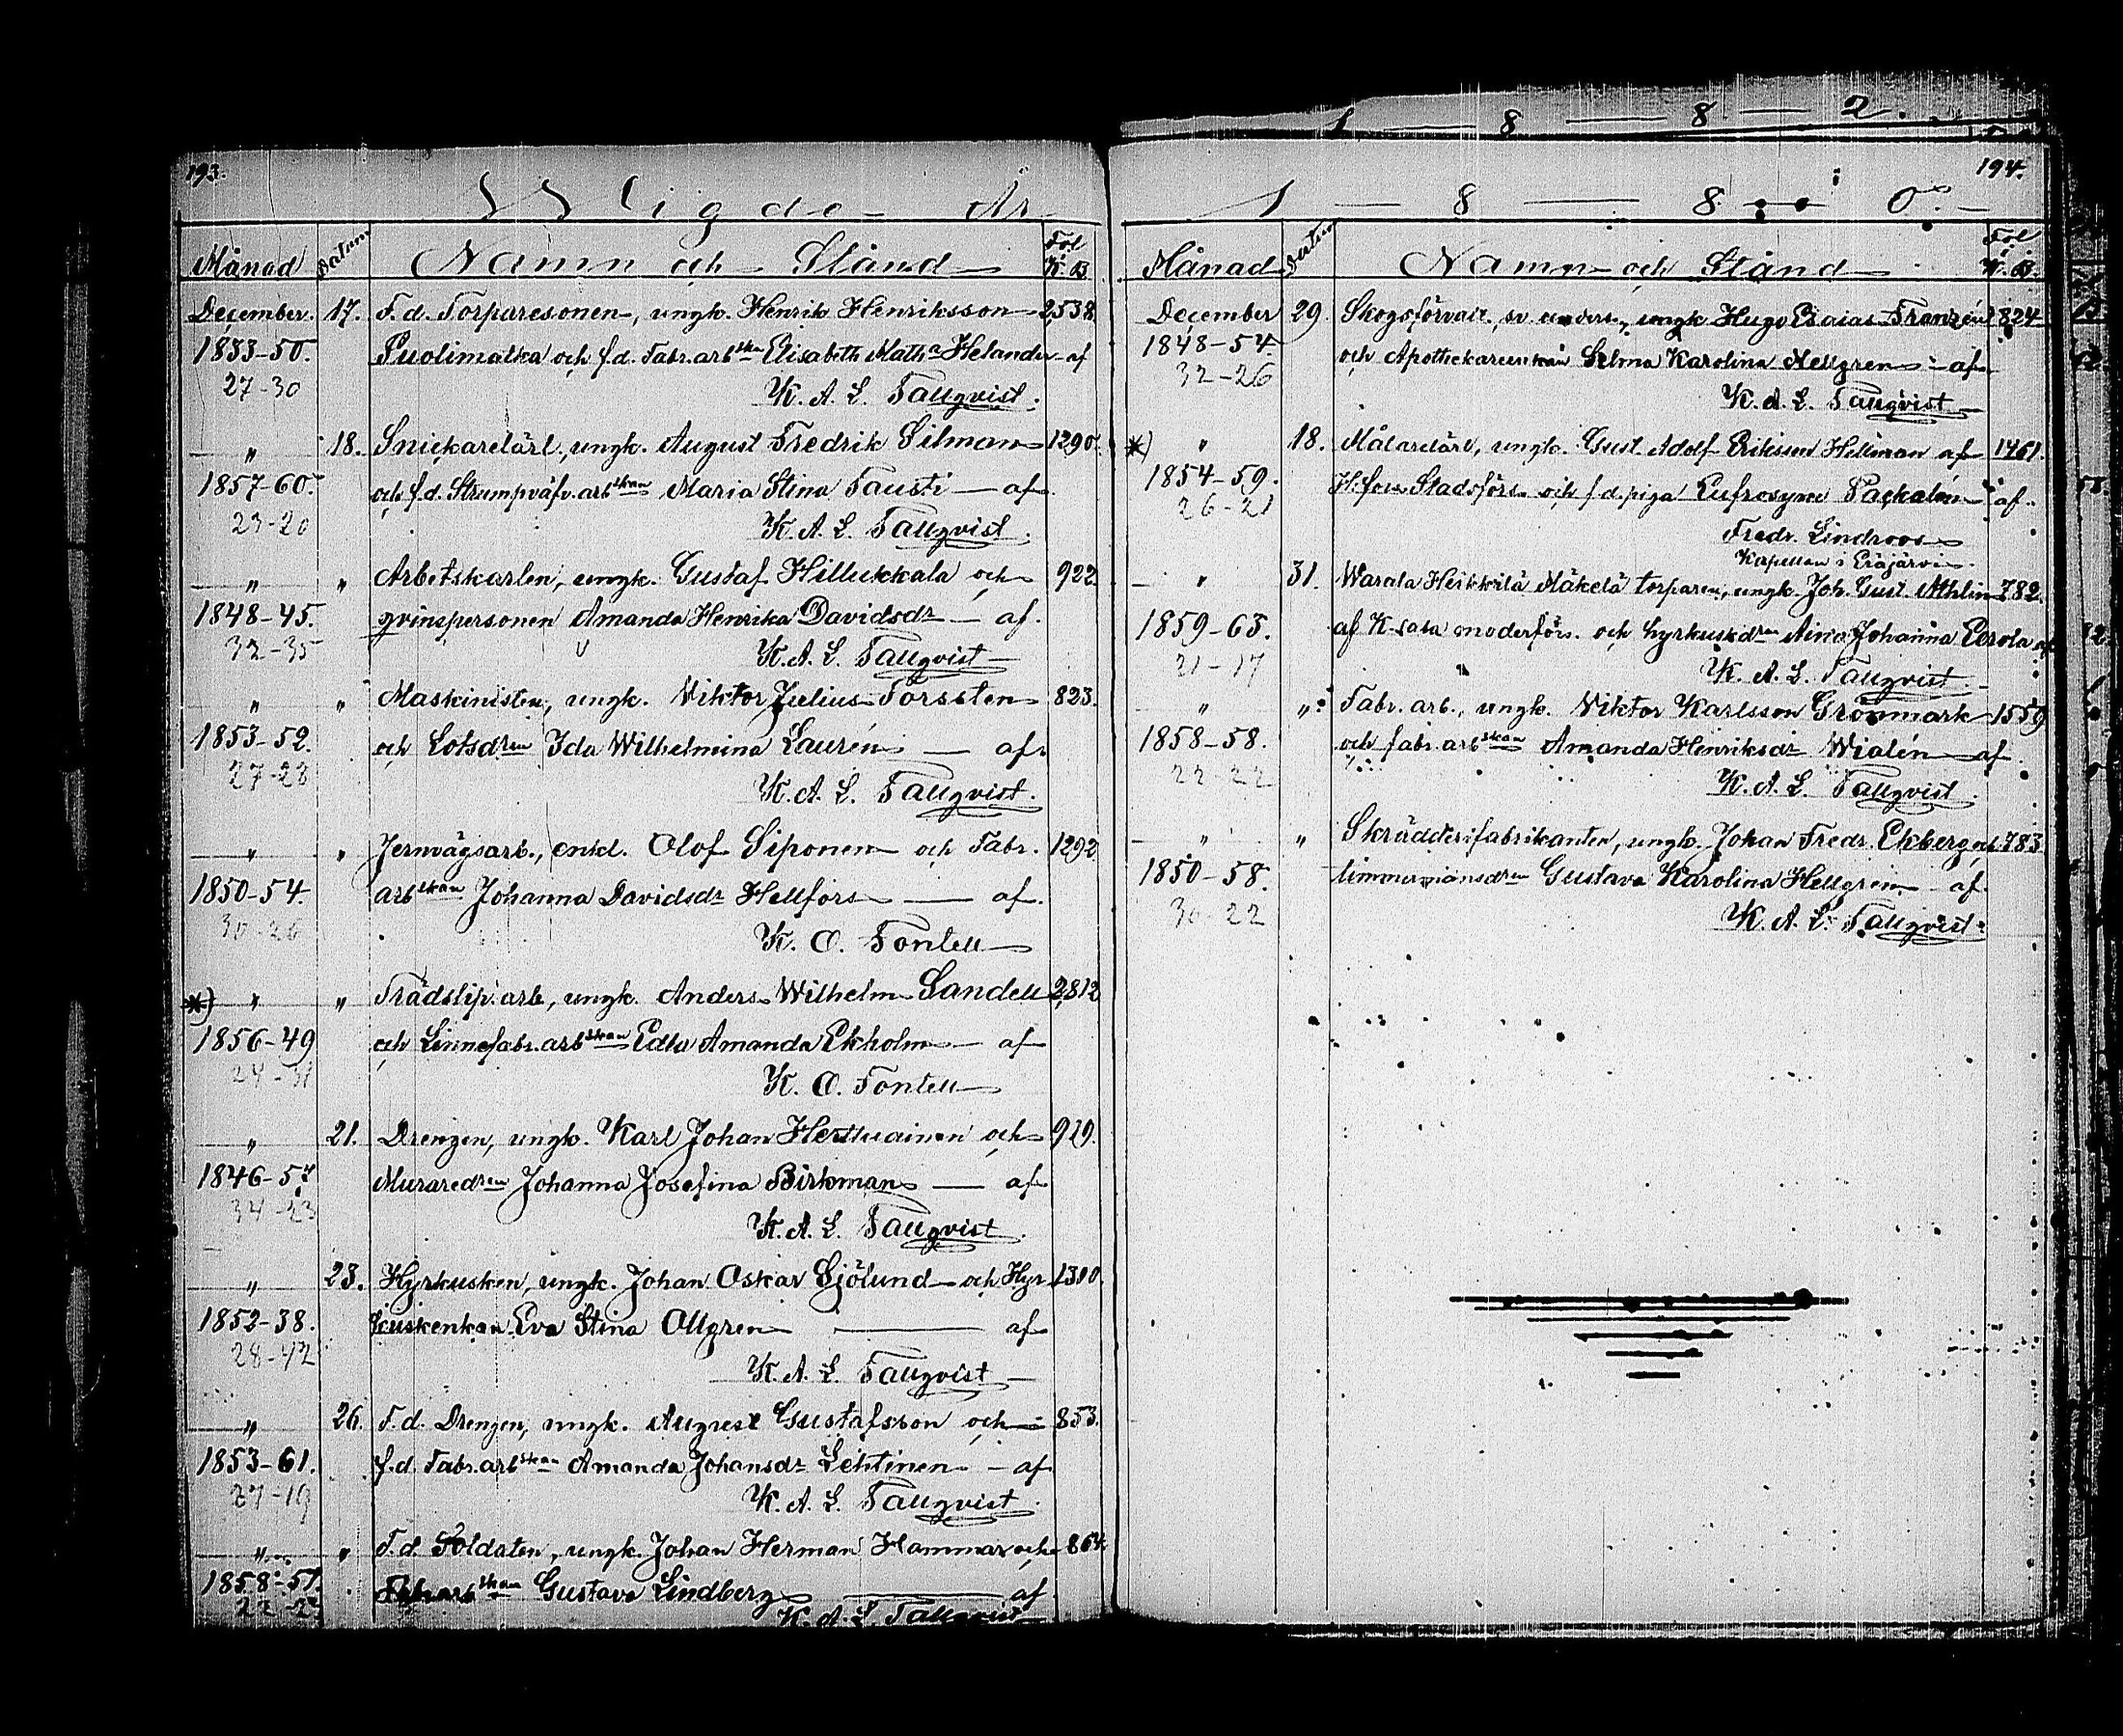 193.
Wigde År
Månad Datum Namn och Stånd Fol K.B.
December. 17. F.d. Torparesonen, ungk. Henrik Henriksson 2,538
1853-50. Puolimatka och f.d. Fabr.arbskan Elisabeth Matha Helander af
27-30 K. A. L. Tallqvist.
" 18. Snickarelärl. ungk. August Fredrik Silman 1290.
1857-60. och f.d. Strumpväfv.arbskan Maria Stina Fausti — af
23-20 K. A. L. Tallqvist.
" " Arbetskarlen, ungk. Gustaf Hillukkala och 922.
1848-45. qvinspersonen Amanda Henrika Davidsdr — af.
32-35 K. A. L. Tallqvist
" " Maskinisten, ungk. Viktor Julius Forsstén 823.
1853-52. och Lotsdren Ida Wilhelmina Laurén — af
27-28 K. A. L. Tallqvist.
" " Jernvägsarb., enkl. Olof Siponen och Fabr. 1292
1850-54. arbskan Johanna Davidsdr Hellfors — af.
30-26 K. O. Fontell
*) " " Trädslip.arb, ungk. Anders Wilhelm Sandell 2,812
1856-49 och Linnefabr.arbskan Edla Amanda Ekholm — af
24-31 K. O. Fontell
" 21. Drengen, ungk. Karl Johan Herttuainen och 929.
1846-57 Muraredren Johanna Josefina Birkman — af
34-23 K. A. L. Tallqvist.
" 23. Hyrkusken, ungk. Johan Oskar Sjölund och Hyr 1310
1852-38. kuskenkan Eva Stina Ollgren — af
28-42 K. A. L. Tallqvist
" 26. F.d. Drengen, ungk. August Gustafsson och 853.
1853-61. f.d. Fabr.arbskan Amanda Johansdr Lehtinen — af
27-19 K. A. L. Tallqvist.
" " F.d. Soldaten, ungk. Johan Herman Hammar och 864
1858-57. Fabr.arbskan Gustava Lindberg — af
K. A. L. Tallqvist
1 — 8 — 8 — 2.
194.
1 — 8 — 8 — 0.
Månad Datum Namn och Stånd Fol K.B.
December 29. Skogsförvalt., sv. unders., ungk. Hugo Esaias Franzén 824
1848-54. och Apothekareenkan Selma Karolina Hellgren — af
32-26 K. A. L. Tallqvist
*) " 18. Målarelärl, ungk. Gust. Adolf Eriksson Hellman af 1461.
1854-59. H.fors Stadsförs. och f.d. piga Eufrosyne Packalén af.
26-21 Fredr. Lindroos
Kapellan i Eräjärvi.
" 31. Warala Heikkilä Mäkelä torparen, ungk. Joh. Gust. Athlin 782.
1859-63. af K.sala moderförs. och hyrkuskdren Aina Johanna Eerola af
21-17 K. A. L. Tallqvist.
" " Fabr. arb., ungk. Viktor Karlsson Grönmark 1559
1858-58. och fabr.arbskan Amanda Henriksdr Wialén — af.
22-22 K. A. L. Tallqvist.
" " Skrädderifabrikanten, ungk. Johan Fredr. Ekberg och 783
1850-58. timmermansdren Gustava Karolina Hellgren — af
30-22 K. A. L. Tallqvist.